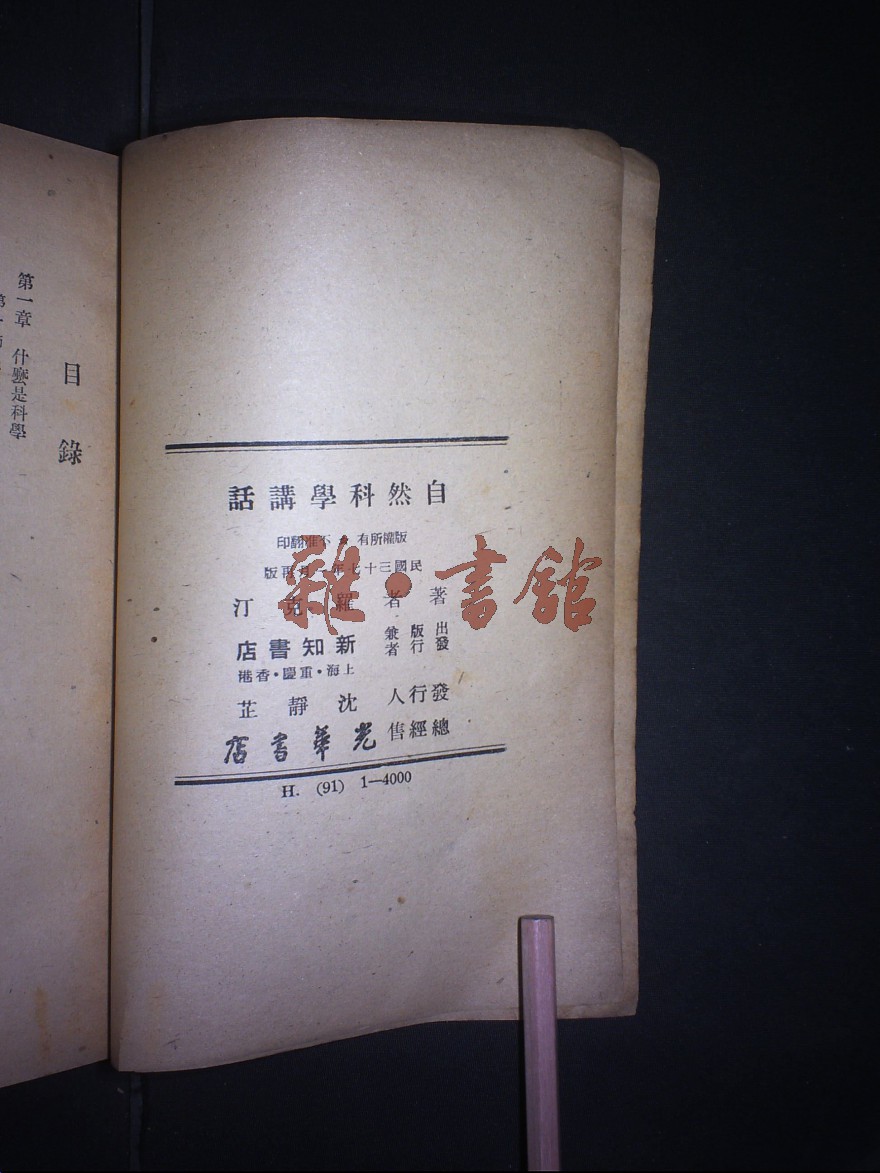 自然科學講話
版權所有 不准翻印
民國三十七年一月再版
著者 羅克汀
出版兼發行者 新知書店
上海・重慶・香港
發行人 沈靜芷
總經售 光華書店
H. (91) 1—4000
目錄
第一章 什麼是科學
雜・書館